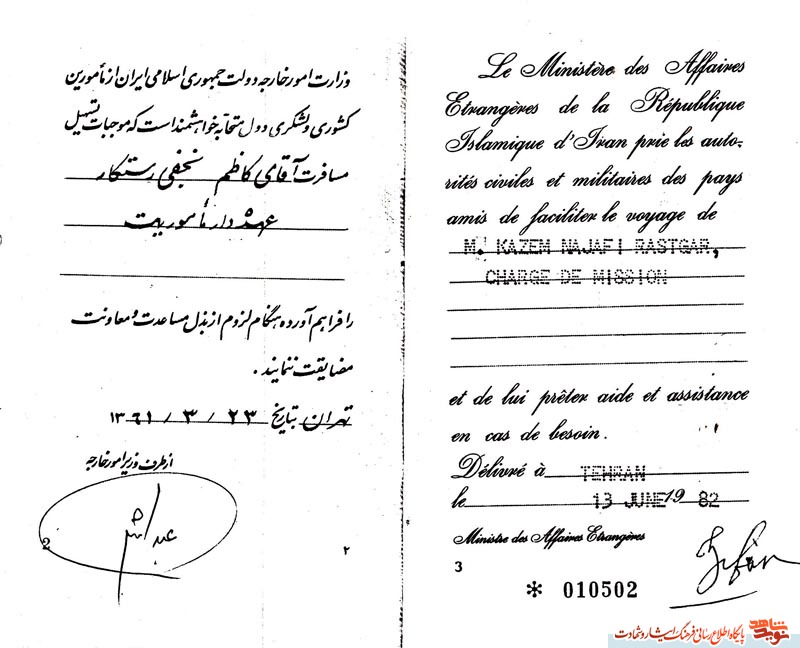 وزارت امور خارجه دولت جمهوری اسلامی ایران از مأمورین
کشوری و لشکری دول متحابه خواهشمند است که موجبات تسهیل
مسافرت آقای کاظم نجفی رستگار
عهده دار مأموریت
را فراهم آورده هنگام لزوم از بذل مساعدت و معاونت
مضایقت ننمایند.
تهران بتاریخ ۲۳ / ۳ / ۱۳۶۱
از طرف وزیر امور خارجه
2
۲
Le Ministère des Affaires
Etrangères de la République
Islamique d'Iran prie les auto-
rités civiles et militaires des pays
amis de faciliter le voyage de
M. KAZEM NAJAFI RASTGAR,
CHARGE DE MISSION
et de lui prêter aide et assistance
en cas de besoin.
Délivré à TEHRAN
le 13 JUNE 19 82
Ministre des Affaires Etrangères
3
* 010502
نوید شاهد پایگاه اطلاع رسانی فرهنگ ایثار و شهادت